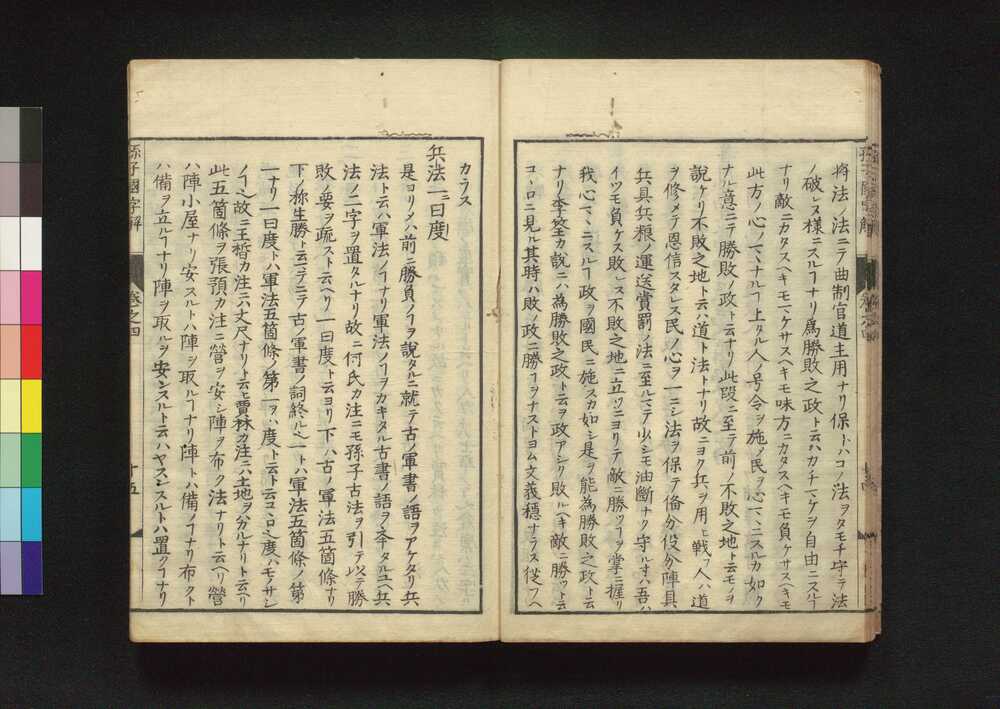 將法ノ法ニテ曲制官道主用ナリ保トハコノ法ヲタモチ守テ法
ノ破レヌ様ニスルヿナリ爲勝敗之政ト云ハカチマケヲ自由ニスルヿ
ナリ敵ニカタスヘキモマケサスヘキモ味方ニカタスヘキモ負ケサスヘキモ
此方ノ心ノマヽナルヿ上タル人ノ号令ヲ施ノ民ヲ心マヽニスルカ如ク
ナル意ニテ勝敗ノ政ト云ナリ此段ニ至テ前ノ不敗之地ト云モノヲ
說ケリ不敗之地ト云ハ道ト法トナリ故ニヨク兵ヲ用ヒ戰フ人ハ道
ヲ修メテ恩信スタレス民ノ心ヲ一ニシ法ヲ保テ備分役分陣具
兵具兵粮ノ運送賞罰ノ法ニ至ルマテ少シモ油斷ナク守ルオハ吾ハ
イツモ負ケス敗レス不敗之地ニ立ツニヨリテ敵ニ勝ツヿヲ掌ニ握リ
我心マヽニスルヿ政ヲ國民ニ施スカ如シ是ヲ能為勝敗之政ト云
ナリ李筌カ說ニハ為勝敗之政ト云ヲ政アシク敗ルヘキ敵ニ勝ツト云
コヽロニ見ル其時ハ敗ノ政ニ勝ヿヲナストヨム文義穩ナラス從フヘ
カラス
兵法一ニ曰度
是ヨリメハ前ニ勝負ノヿヲ說タルニ就テ古ノ軍書ノ語ヲアケタリ兵
法ト云ハ軍法ノヿナリ軍法ノヿヲカキタル古書ノ語ヲ夲タルユヘ兵
法ノ二字ヲ置タルナリ故ニ何氏カ注ニモ孫子古法ヲ引テ以テ勝
敗ノ要ヲ疏スト云ヘリ一曰度ト云ヨリ下ハ古ノ軍法五箇條ナリ
下ノ称生勝ト云ニテ古ノ軍書ノ詞終ル也一トハ軍法五箇條ノ第
一ナリ一曰度トハ軍法五箇條ノ第一ヲハ度ト云ト云コヽロ也度ハモノサシ
ノヿ也故ニ王晳カ注ニハ丈尺ナリト云ヒ賈林カ注ニハ土地ヲ分ルナリト云ヘリ
此五箇條ヲ張預カ注ニ營ヲ安シ陣ヲ布ク法ナリト云ヘリ營
ハ陣小屋ナリ安スルトハ陣ヲ取ルヿナリ陣トハ備ノヿナリ布クト
ハ備ヲ立ルヿナリ陣ヲ取ルヲ安ンスルト云ハヤスンスルトハ置クヿナリ
孫子國字解
卷之四
十五